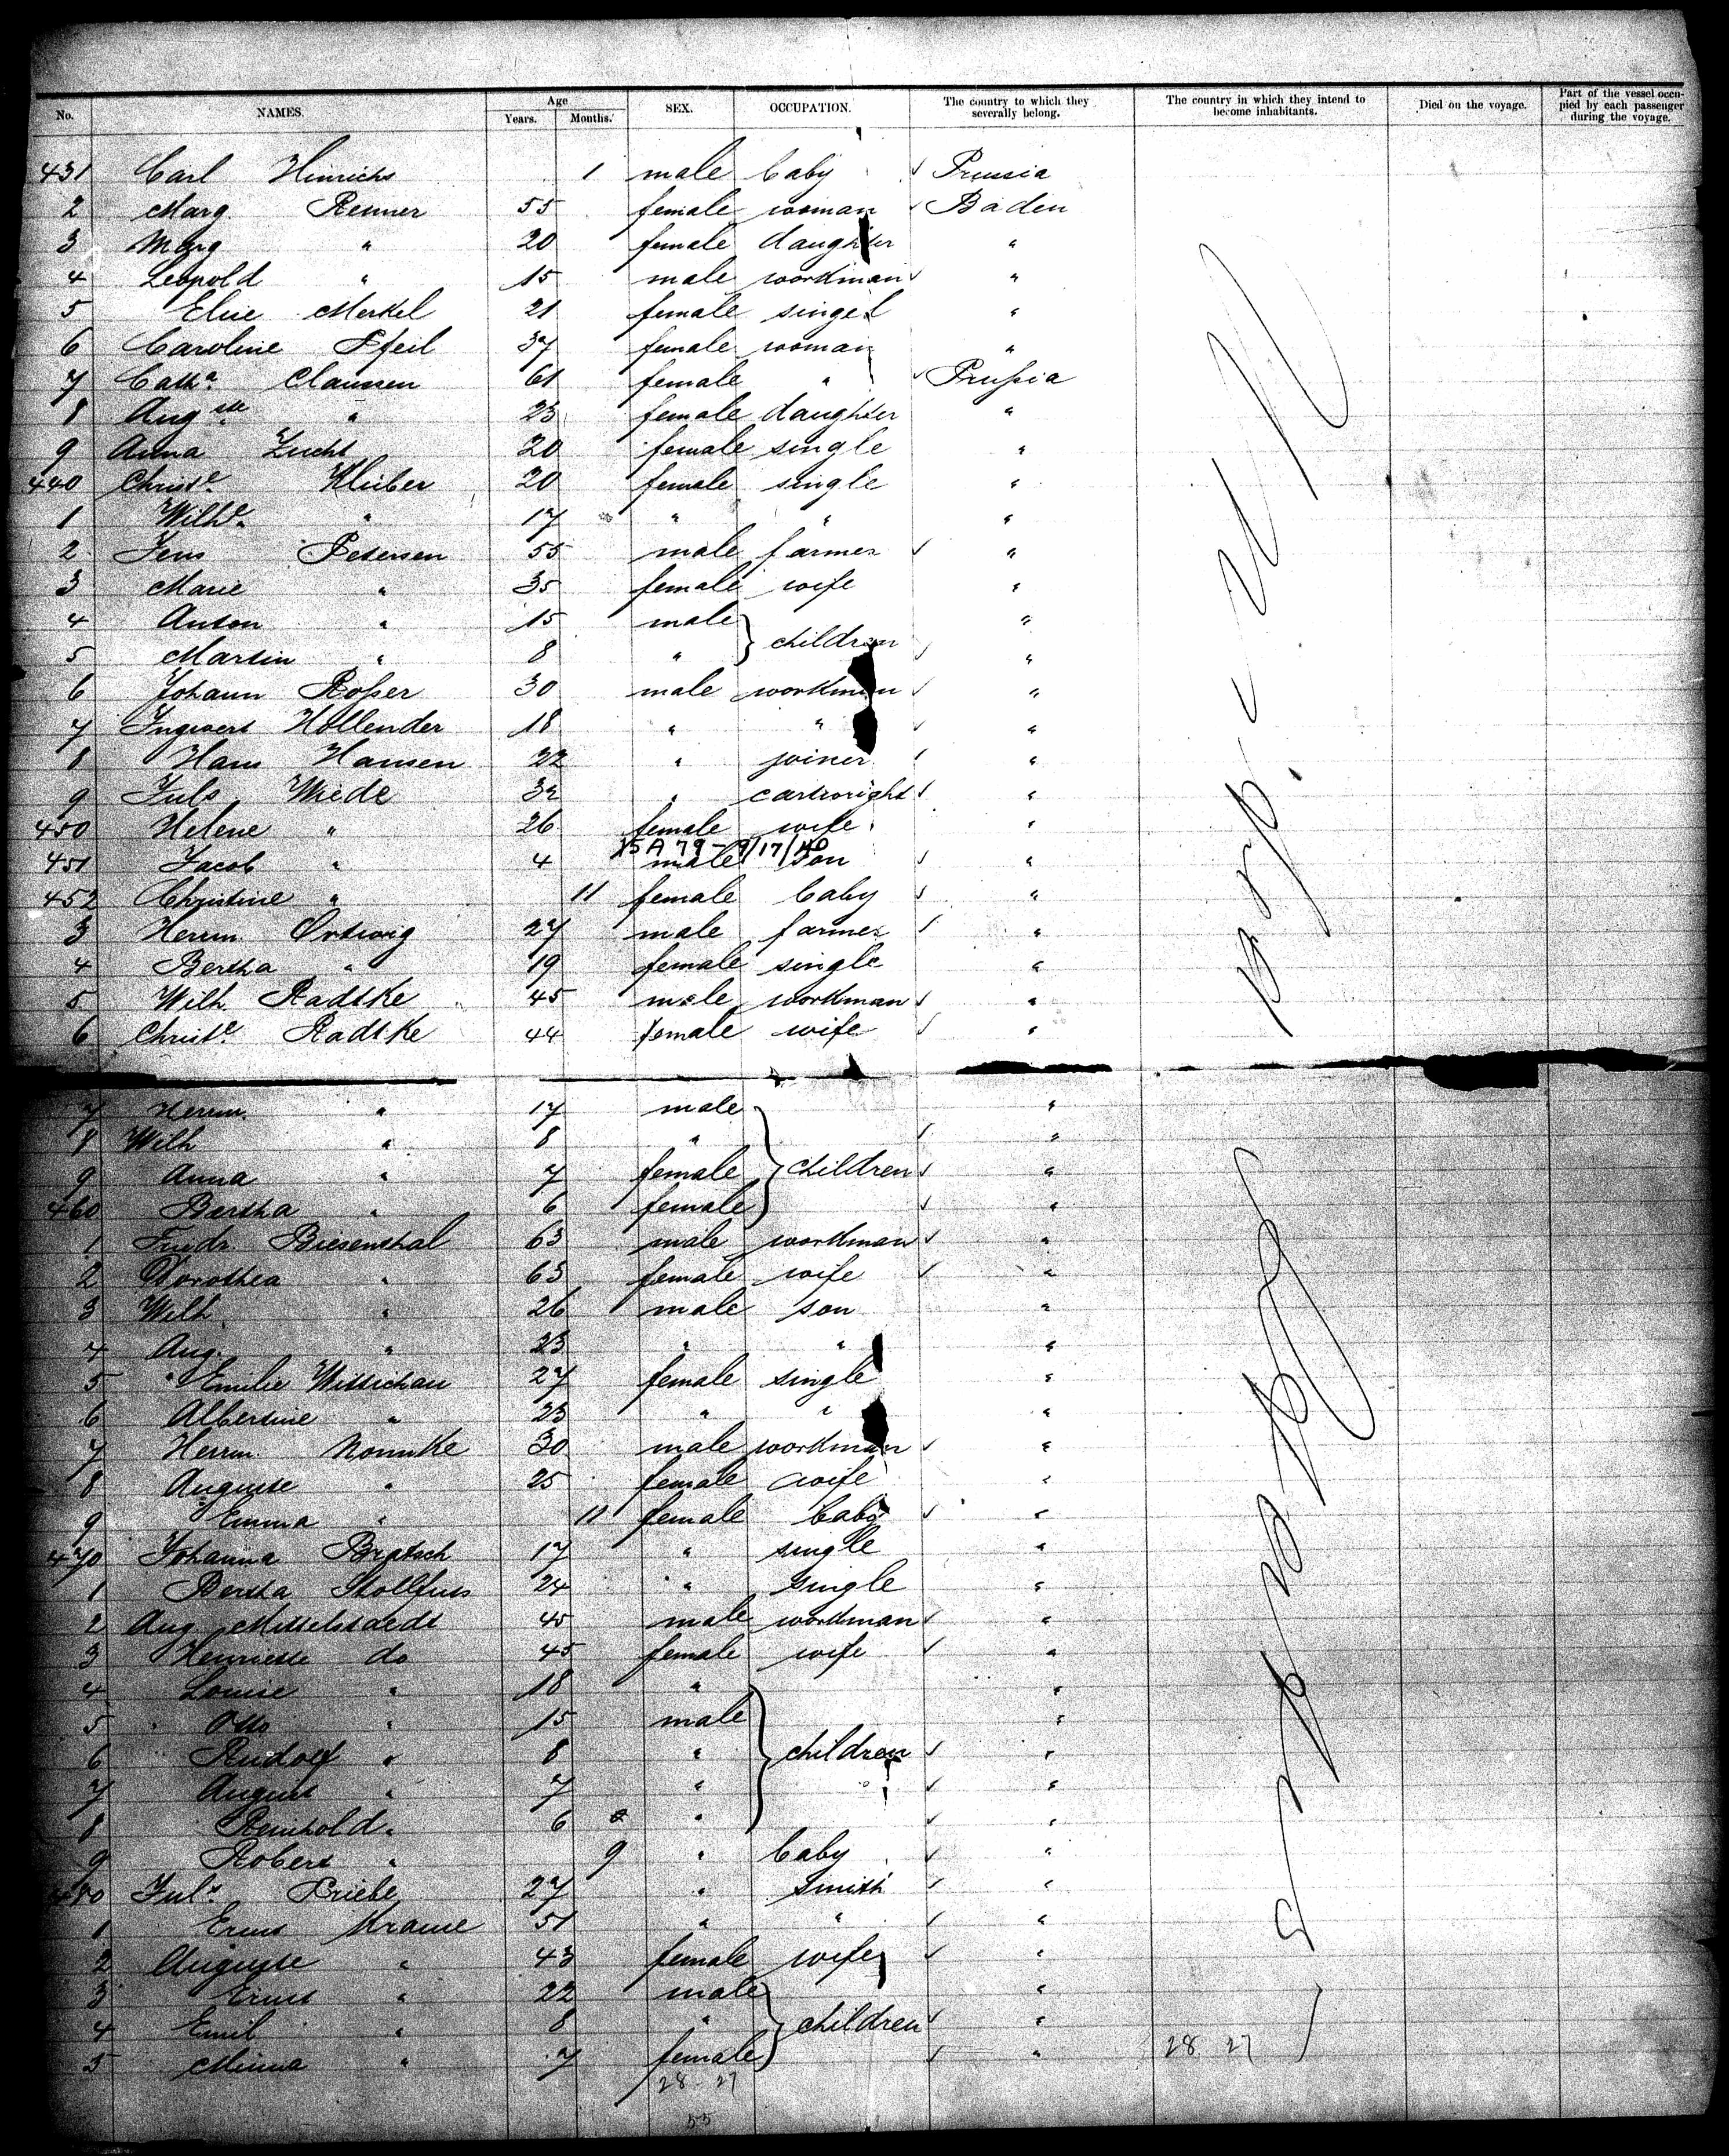 No. NAMES. Age Years. Months. SEX. OCCUPATION. The country to which they severally belong. The country in which they intend to become inhabitants. Died on the voyage. Part of the vessel occupied by each passenger during the voyage.
431 Carl Hinrichs 1 male baby ✓ Prussia
2 Marg. Renner 55 female woman ✓ Baden
3 Marg " 20 female daughter "
4 Leopold " 15 male workman ✓ "
5 Elise Merkel 21 female singel "
6 Caroline Pfeil 37 female woman "
7 Cath.a Claussen 61 female " ✓ Prußia
8 Aug.ste " 23 female daughter "
9 Anna Zucht 20 female single "
440 Christ.e Klüber 20 female single "
1 Wilh.e " 17 " " "
2 Jens Petersen 55 male farmer ✓ "
3 Marie " 35 female wife "
4 Anton " 15 male "
children
5 Martin " 8 " ✓ "
6 Johann Roßer 30 male workman ✓ "
7 Ingwert Hollender 18 " " ✓ "
8 Hans Hansen 22 " joiner ✓ "
9 Juls Wrede 32 " cartwright ✓ "
450 Helene " 26 female wife "
15 A 79 - 9/17/40
451 Jacob " 4 male son ✓ "
452 Christine " 11 female baby ✓ "
3 Herrm. Ortwig 27 male farmer ✓ "
4 Bertha " 19 female single "
5 Wilh Radtke 45 male workman ✓ "
6 Christ.e Radtke 44 female wife ✓ "
7 Herrm. " 17 male "
8 Wilh " 8 " ✓ "
9 Anna " 7 female children ✓ "
460 Bertha " 6 female ✓ "
1 Friedr. Biesenthal 63 male workman ✓ "
2 Dorothea " 63 female wife ✓ "
3 Wilh. " 26 male son "
4 Aug. " 23 " " "
5 Emilie Wittichau 27 female single "
6 Albertine " 23 " " "
7 Herrm. Nommke 30 male workman ✓ "
8 Auguste " 25 female wife "
9 Emma " 11 female baby ✓ "
470 Johanna Bratsch 17 " single "
1 Bertha Stollfuss 24 " single "
2 Aug. Mittelstaedt 45 male workman ✓ "
3 Henriette do 45 female wife ✓ "
4 Louise " 18 " "
5 Otto " 15 male "
6 Rudolf " 8 " children ✓ "
7 August " 7 " ✓ "
8 Reinhold " 6 " ✓ "
9 Robert " 9 " baby ✓ "
480 Jul.s Priebe 27 " smith ✓ "
1 Ernst Krause 51 " " ✓ "
2 Auguste " 43 female wife ✓ "
3 Ernst " 22 male "
4 Emil " 8 " children ✓ "
5 Minna " 7 female ✓ " 28 27
28 - 27
55